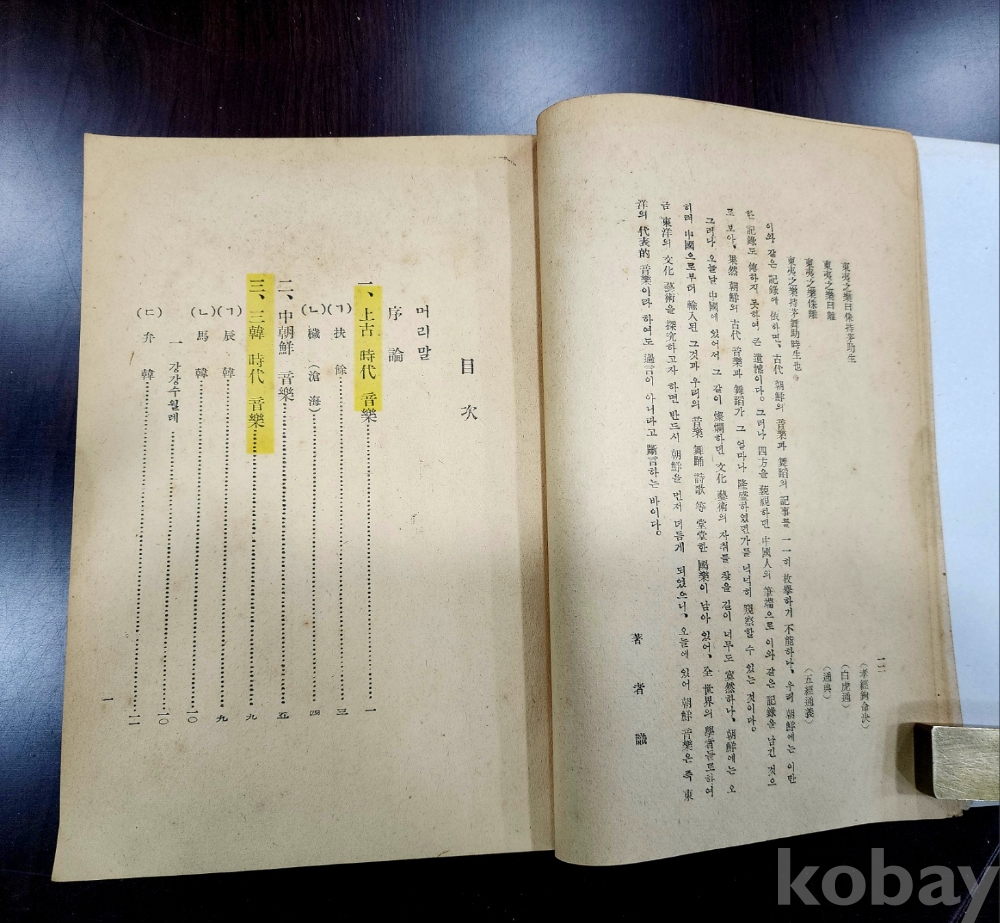 東夷之樂曰侏持矛助生
東夷之樂曰離
東夷之樂侏離
東夷之樂持矛舞助時生也。
(孝經鉤命決)
(白虎通)
(通典)
(五經通義)
이와 같은 記錄에 依하면, 古代 朝鮮의 音樂과 舞蹈의 記事를 一一히 枚擧하기 不能하나, 우리 朝鮮에는 이만
한 記錄도 傳하지 못하여 큰 遺憾이다. 그러나 四方을 藐視하면 中國人의 筆端으로 이와 같은 記錄을 남긴 것으
로 보아, 果然 朝鮮의 古代 音樂과 舞蹈가 그 얼마나 隆盛하였던가를 넉넉히 窺察할 수 있는 것이다.
그러나 오늘날 中國에 있어서 그 같이 燦爛하던 文化 藝術의 자취를 찾을 길이 너무도 寥然하나, 朝鮮에는 오
히려 中國으로부터 輸入된 그것과 우리의 音樂 舞踊 詩歌 等 堂堂한 國樂이 남아 있어, 全 世界의 學者들로하여
금 東洋의 文化 藝術을 探究하고자 하면 반드시 朝鮮을 먼저 더듬게 되었으니, 오늘에 있어 朝鮮 音樂은 즉 東
洋의 代表的 音樂이라 하여도 過言이 아니라고 斷言하는 바이다.
著者 識
一二
目次
머리말
序論
一、上古 時代 音樂 一
(ㄱ) 扶餘 三
(ㄴ) 穢 (滄海) 四
二、中朝鮮 音樂 五
三、三韓 時代 音樂 九
(ㄱ) 辰韓 九
(ㄴ) 馬韓 一〇
一 강강수월레 一〇
(ㄷ) 弁韓 一二
一
kobay